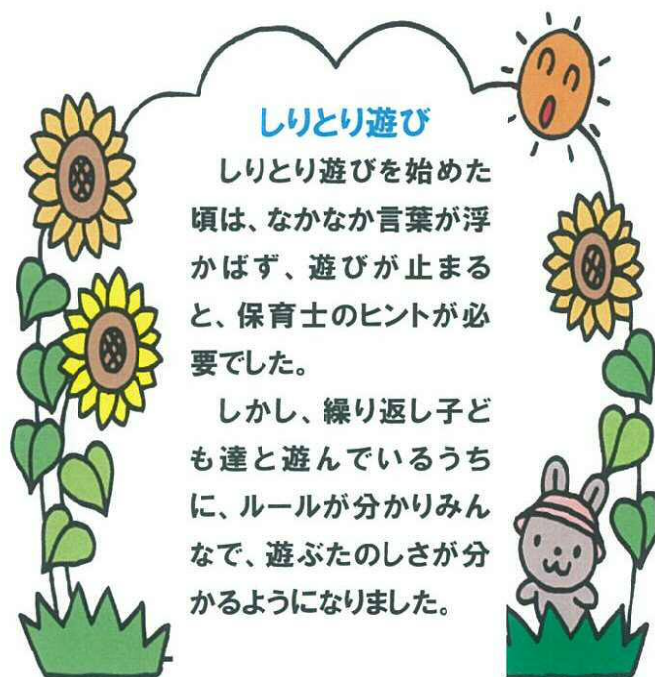 しりとり遊び
しりとり遊びを始めた
頃は、なかなか言葉が浮
かばず、遊びが止まる
と、保育士のヒントが必
要でした。
しかし、繰り返し子ど
も達と遊んでいるうち
に、ルールが分かりみん
なで、遊ぶたのしさが分
かるようになりました。